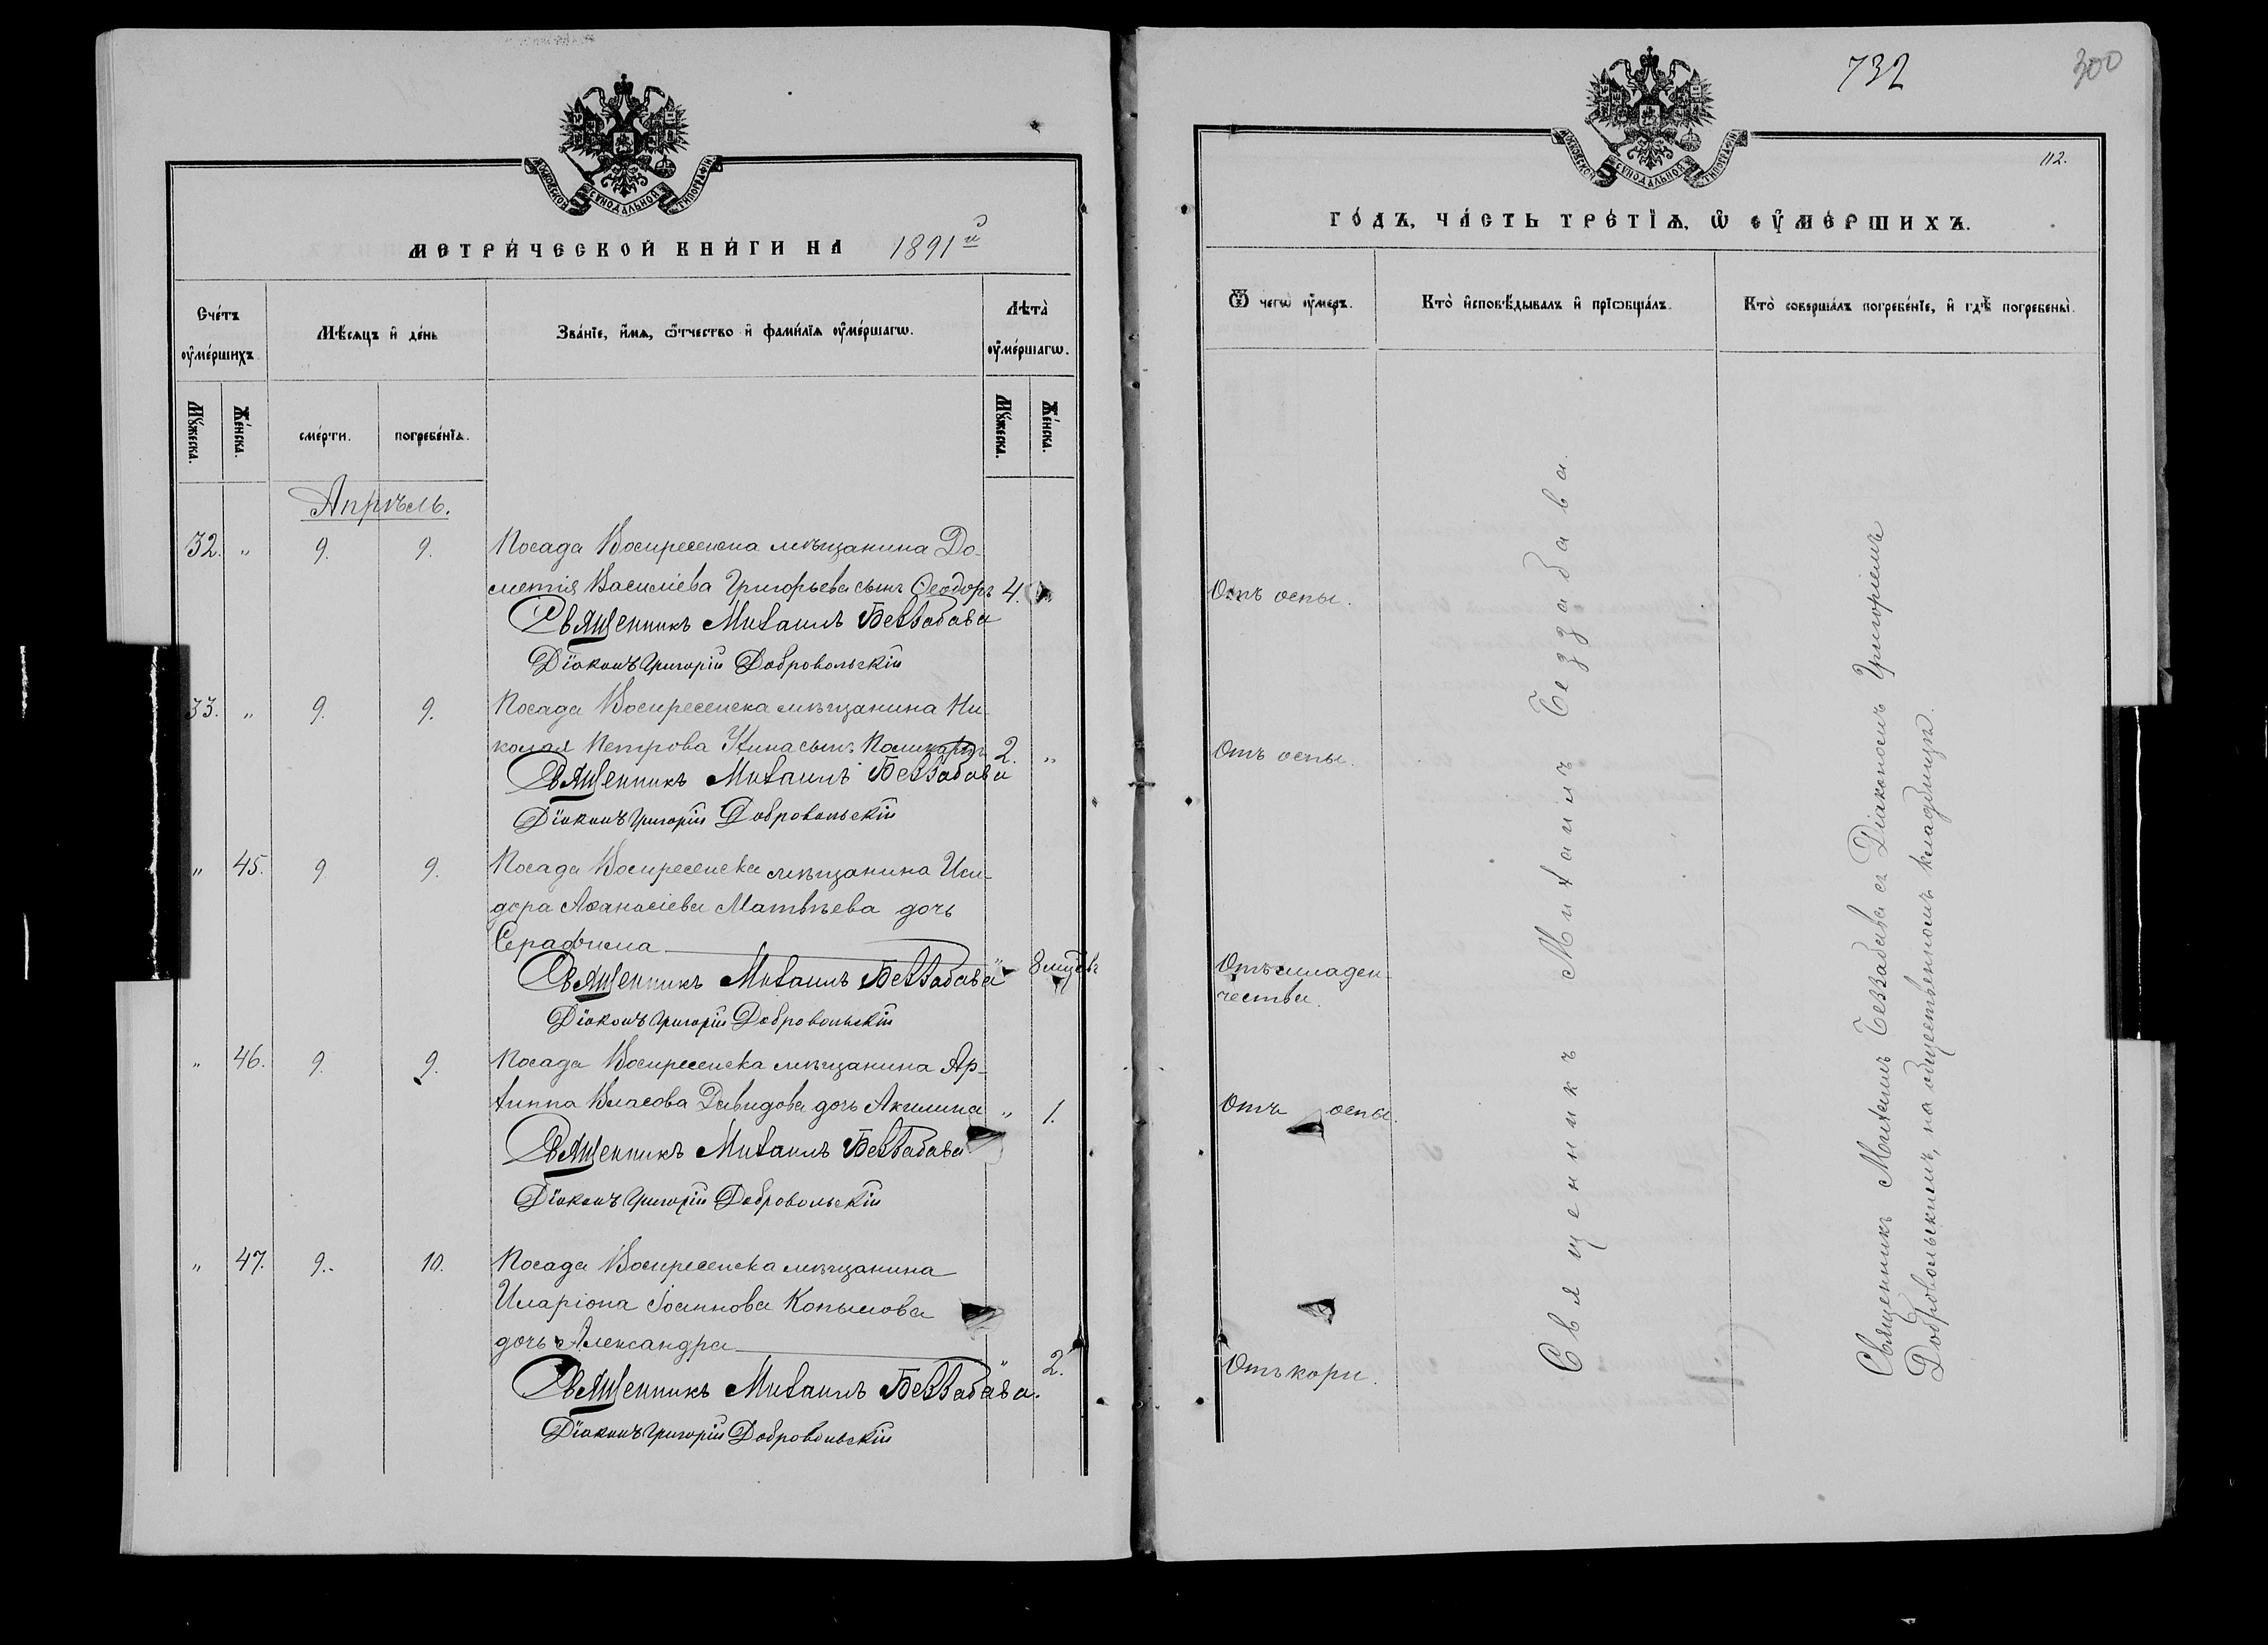 МОСКОВСКОЙ СѴНОДАЛЬНОЙ ТИПОГРАФІИ
МЕТРИ́ЧЕСКОЙ КНИ́ГИ НА 1891й
Сче́тъ ᲂу҆ме́ршихъ.
Мѣ́сяцъ и҆ де́нь
Зва́нїе, и҆́мѧ, ѻ҆́тчество и҆ фами́лїѧ ᲂу҆ме́ршагѡ.
Лѣта̀ ᲂу҆ме́ршагѡ.
Мꙋ́жеска.
Же́нска.
сме́рти.
погребе́нїѧ.
Мꙋ́жеска.
Же́нска.
Апрѣль.
32. „ 9. 9. Посада Воскресенска мѣщанина До-
метія Василіева Григорьева сынъ Ѳеодоръ 4.
Священникъ Михаилъ Беззабава
Діаконъ Григорій Добровольскій
33. „ 9. 9. Посада Воскресенска мѣщанина Ни-
колая Петрова сынъ Поликарпъ 2. „
Священникъ Михаилъ Беззабава
Діаконъ Григорій Добровольскій
„ 45. 9 9. Посада Воскресенска мѣщанина Иси-
дора Аѳанасіева Матвѣева дочь
Серафима „ 8 мцѣвъ
Священникъ Михаилъ Беззабава
Діаконъ Григорій Добровольскій
„ 46. 9. 9. Посада Воскресенска мѣщанина Ар-
хиппа Власова Давидова дочь Акилина „ 1.
Священникъ Михаилъ Беззабава
Діаконъ Григорій Добровольскій
„ 47. 9. 10. Посада Воскресенска мѣщанина
Иларіона Іоаннова Копылова
дочь Александра „ 2.
Священникъ Михаилъ Беззабава.
Діаконъ Григорій Добровольскій
732
300
112.
МОСКОВСКОЙ СѴНОДАЛЬНОЙ ТИПОГРАФІИ
ГО́ДЪ, ЧА́СТЬ ТРЕ́ТЇѦ, Ѡ҆ ᲂУ҆МЕ́РШИХЪ.
Ѿ чегѡ̀ ᲂу҆́меръ.
Кто̀ и҆сповѣ́дывалъ и҆ прїѡбща́лъ.
Кто̀ соверша́лъ погребе́нїе, и҆ гдѣ̀ погребены̀.
Отъ оспы.
Отъ оспы.
Отъ младен-
чества.
Отъ оспы.
Отъ кори.
Священникъ Михаилъ Беззабава.
Священникъ Михаилъ Беззабава съ Діакономъ Григоріемъ
Добровольскимъ, на общественномъ кладбищѣ.